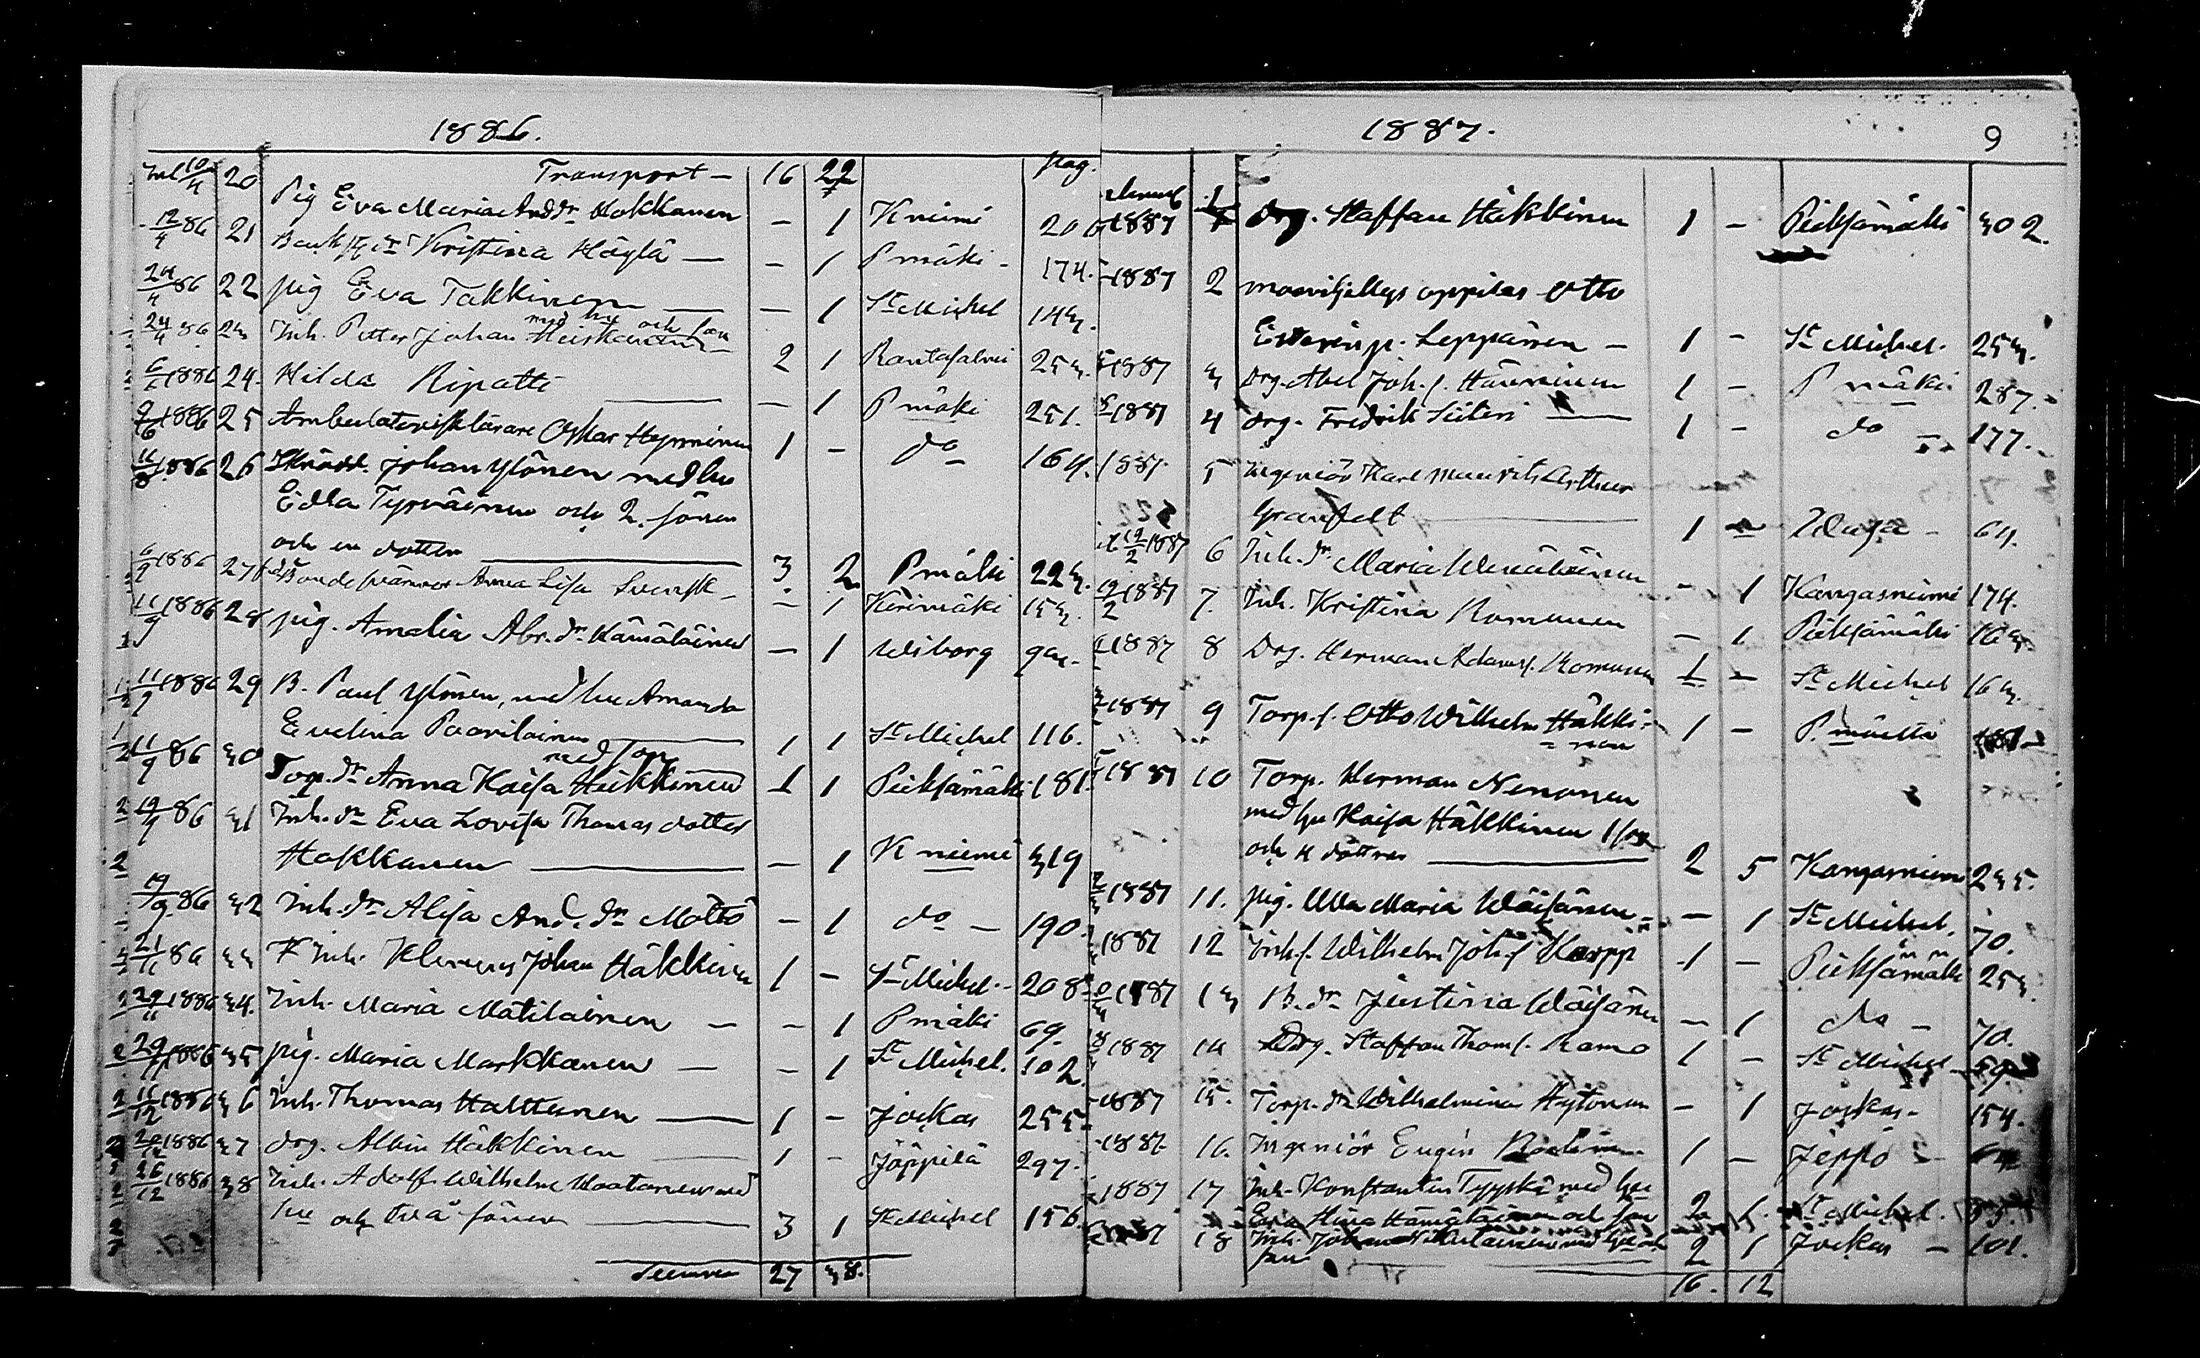 1886.
Inl 10/4 20 Transport — 16 22 pag.
Pig Eva Maria And.dr Hokkanen — 1 K niemi 206
12/4 86 21 Kristina Häylä — — 1 P mäki - 174.
24/4 86 22 pig Eva Takkinen — — 1 St Michel 143.
24/4 86 23 Inh. Petter Johan Heiskanen med hu och son 2 1 Rantasalmi 253.
6/6 1886 24. Hilda Ripatti — — 1 P mäki 251.
9/6 1886 25 Ambulatoriskolärare Oskar Hyvninen 1 – do 164.
11/8 1886 26 Skrädd. Johan Ylönen med hu
Edla Tyrväinen och 2. söner
och en dotter — 3. 2 P mäki 223.
6/9 1886 27 Anna Lisa Svensk — — 1 Kerimäki 153.
11/9 1886 28 pig. Amalia Abr. dr Kämäläinen — 1 Wiborg
11/9 1886 29 B. Paul Ylönen, med hu Amanda
Evelina Paavilainen — 1 1 St Michel 116.
11/9 86 30 Torp. dr Anna Kaisa Häkkinen med son 1 1 Pieksämäki 181.
19/9 86 31 Inh. dr Eva Lovisa Thomas dotter
Hokkanen — — 1 K niemi 319
19/9 86 32 Inh. dr Alisa And. dr Mattö — 1 do — 190
21/11 86 33 F Inh. Klemens Johan Häkkinen 1 – St Michel - 208
29/11 1886 34. Inh. Maria Matilainen — — 1 P mäki 69.
29/11 1886 35 pig. Maria Markkanen — — 1 St Michel. 102.
11/12 1886 36 Inh. Thomas Halttunen — 1 – Jockas 255
20/12 1886 37 drg. Albin Häkkinen — 1 – Jäppilä 297.
26/12 1886 38 Inh. Adolf Wilhelm Kaatonen med
hu och två söner — 3 1 St Michel 156
Summa 27 38.
1887. 9
1887 1 drg. Staffan Häkkinen 1 – Pieksämäki 302.
1887 2 maanviljellys oppilas Otto
Leppänen — 1 – St Michel. 253.
1887 3 Drg. Abel Joh. s. Hänninen 1 – P mäki 287.
1887 4 drg. Fredrik Seiteri — 1 – do — 177.
1887. 5 ingeniör Karl Maurits Arthur
Granfelt — 1 – Wasa - 64.
12/2 1887 6 Inh. dr Maria Wenäläinen — 1 Kangasniemi 174.
12/2 1887 7. Inh. Kristina Romanen — 1 Pieksämäki 163.
1887 8 Drg. Herman Adams s. Romanen 1 – St Michel 163.
1887 9 Torp. s. Otto Wilhelm Häkki-
= nen 1 – P. mäellä
1887 10 Torp. Herman Nenonen
med hu Kaisa Häkkinen 1 son
och 4 döttrar — 2 5 Kangasniemi 235.
1887 11. pig. Ulla Maria Wäisänen — 1 St Michel. 70.
1887 12 Inh. s. Wilhelm Joh. s Karpp 1 – Pieksämäki 253.
1887 13 B. dr Justina Wäisänen — 1 do — 70.
1887 14 Drg. Staffan Thom s. Ramo 1 – St Michel 59
1887 15. Torp. dr Wilhelmina Hytönen – 1 Jockas - 154.
1887 16. Ingeniör Eugén 1 – Jeppo
1887 17 Inh. Konstantin Tyyskä med hu
Eva Stina Hämäläinen och son 2 1 St Michel.
1887 18 Inh. Johan med hu och
son 2 1 Jockas — 101.
16. 12